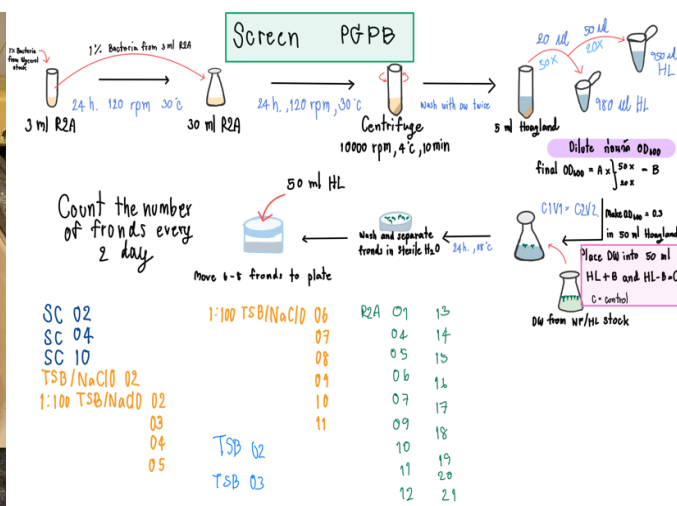 Screen PGPB
1% Bacteria
from Glycerol
stock
1% Bacteria from 3 ml R2A
24 h. 120 rpm 30°c
3 ml R2A
30 ml R2A
24 h. ,120 rpm ,30°c
Centrifuge
10000 rpm, 4°c, 10 min
Wash with DW twice
20 ul
50X
50 ul
20X
950 ul
HL
980 ul HL
5 ml Hoagland
Dilute ก่อนวัด OD600
final OD600 = A x } 50x - B
20x
C1V1 = C2V2
Make OD600 = 0.3
in 50 ml Hoagland
Place DW into 50 ml
HL + B and HL-B=C
C = control
DW from NF/HL stock
24h.
Wash and separate
fronds in Sterile H2O
50 ml HL
Move 6-8 fronds to plate
Count the number
of fronds every
2 day
SC 02
SC 04
SC 10
TSB/NaClO 02
1:100 TSB/NaClO 02
03
04
05
1:100 TSB/NaClO 06
07
08
09
10
11
TSB 02
TSB 03
R2A 01 13
04 14
05 15
06 16
07 17
09 18
10 19
11 20
12 21